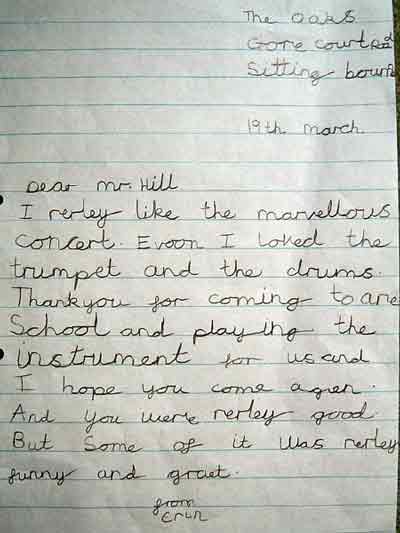 The Oaks
Gore court Rd
Sitting bourn
19th march.
Dear mr. Hill
I rerley like the marvellous
concert. Evoon I loved the
trumpet and the drums.
Thankyou for coming to are
School and playing the
instrument for us and
I hope you come agien.
And you were rerley good
But Some of it was rerley
funny and graet.
from